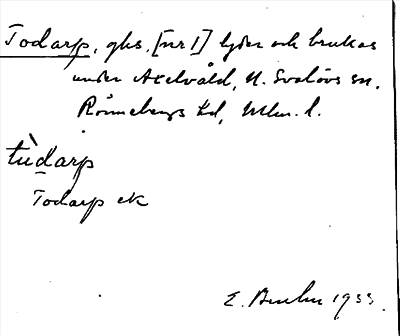 Todarp, ghs. [nr 1] lyder och brukas
under Axelvåld, N. Svalövs sn.
Rönnebergs hd, Mlm. l.
tùdarp
Todarp ek
E. 1933.